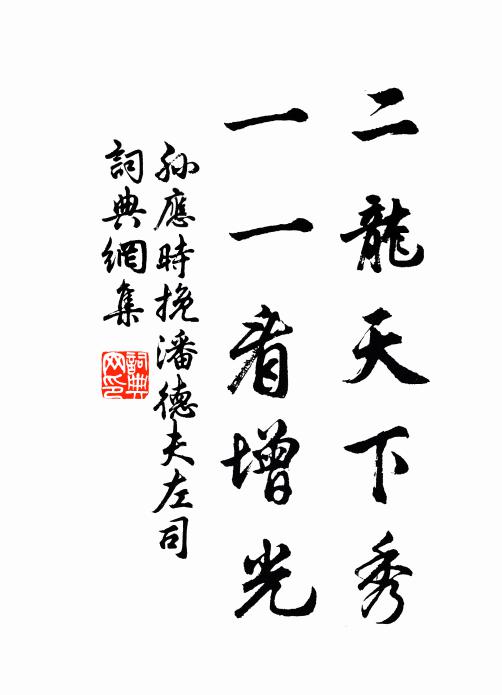 二龍天下秀
一一看增光
孫應時挽潘德夫左司
詞典網集
詞典網印